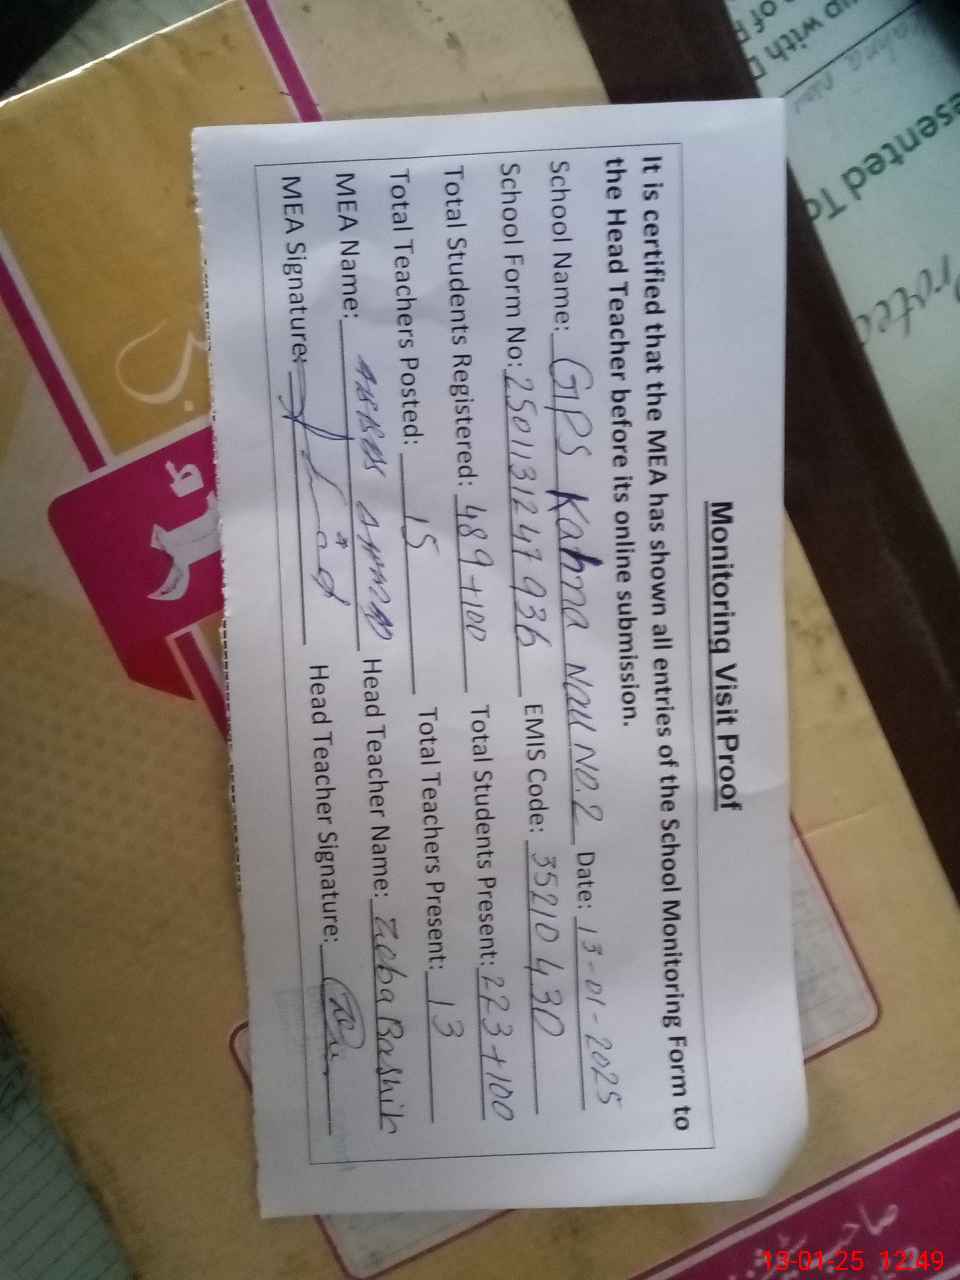 Monitoring Visit Proof
It is certified that the MEA has shown all entries of the School Monitoring Form to
the Head Teacher before its online submission.
School Name: GPS Kahna Nau No.2 Date: 13-01-2025
School Form No: 2501131247936 EMIS Code: 35210430
Total Students Registered: 489+100 Total Students Present: 223+100
Total Teachers Posted: 15 Total Teachers Present: 13
MEA Name: Head Teacher Name: Zeba Bashir
MEA Signature: Head Teacher Signature:
up with
of
esented To
صاحب
13-01-25 12:49